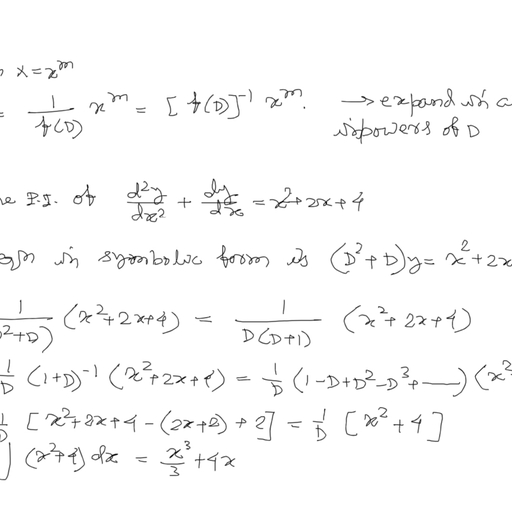 x = x^m
= 1/f(D) x^m = [f(D)]^-1 x^m. → expand in a
in powers of D
P.I. of d²y/dx² + dy/dx = x²+2x+4
eqn in symbolic form is (D²+D)y = x²+2x
(x²+2x+4) = 1/D(D+1) (x²+2x+4)
1/D (1+D)^-1 (x²+2x+4) = 1/D (1-D+D²-D³+ —) (x²
1/D [x²+2x+4-(2x+2)+2] = 1/D [x²+4]
(x²+4) dx = x³/3 + 4x